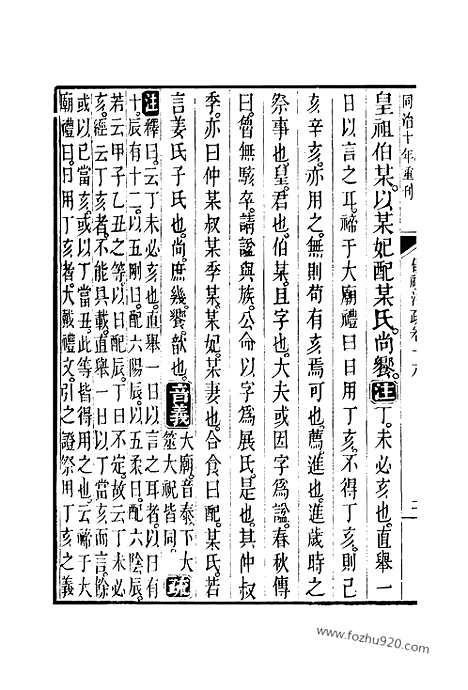 同治十年重刊 儀禮注疏卷十六 二
皇祖伯某。以某妃配某氏。尚饗。注丁。未必亥也。直舉一
日以言之耳。禘于大廟禮曰。日用丁亥。不得丁亥。則己
亥辛亥。亦用之。無則苟有亥焉可也。薦。進也。進歲時之
祭事也。皇。君也。伯某。且字也。大夫或因字爲謚。春秋傳
曰。魯無駭卒。請謚與族。公命以字爲展氏。是也。其仲叔
季。亦曰仲某叔某季某。某妃。某妻也。合食曰配。某氏。若
言姜氏子氏也。尚。庶幾。饗。歆也。音義大廟。音泰。下大
筮大祝皆同疏
注釋曰。云丁未必亥也。直舉一日以言之耳者。以日有
十。辰有十二。以五剛日。配六陽辰。以五柔日。配六陰辰。
若云甲子乙丑之等。以日配辰。丁日不定。故云丁未必
亥。經云丁亥者。不能具載。直舉一日。以丁當亥而言。餘
或以己當亥。或以丁當丑。此等皆得用之也。云禘于大
廟禮曰。日用丁亥者。大戴禮文。引之。證祭用丁亥之義
www.fozhu920.com